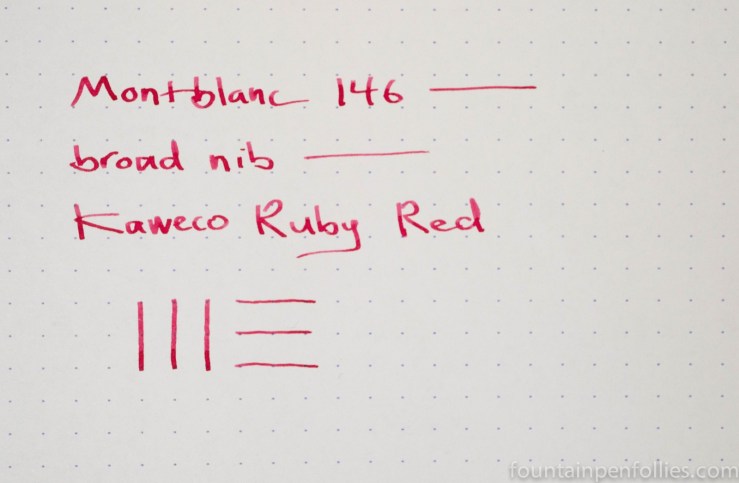 Montblanc 146
broad nib
Kaweco Ruby Red
fountainpenfollies.com